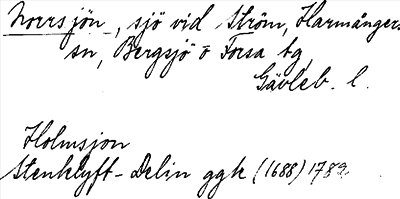 Norrsjön, sjö vid Ström, Harmångers
sn, Bergsjö o Forsa tg,
Gävleb. l.
Holmsjon
Stenklyft-Delin ggk (1688) 1789.